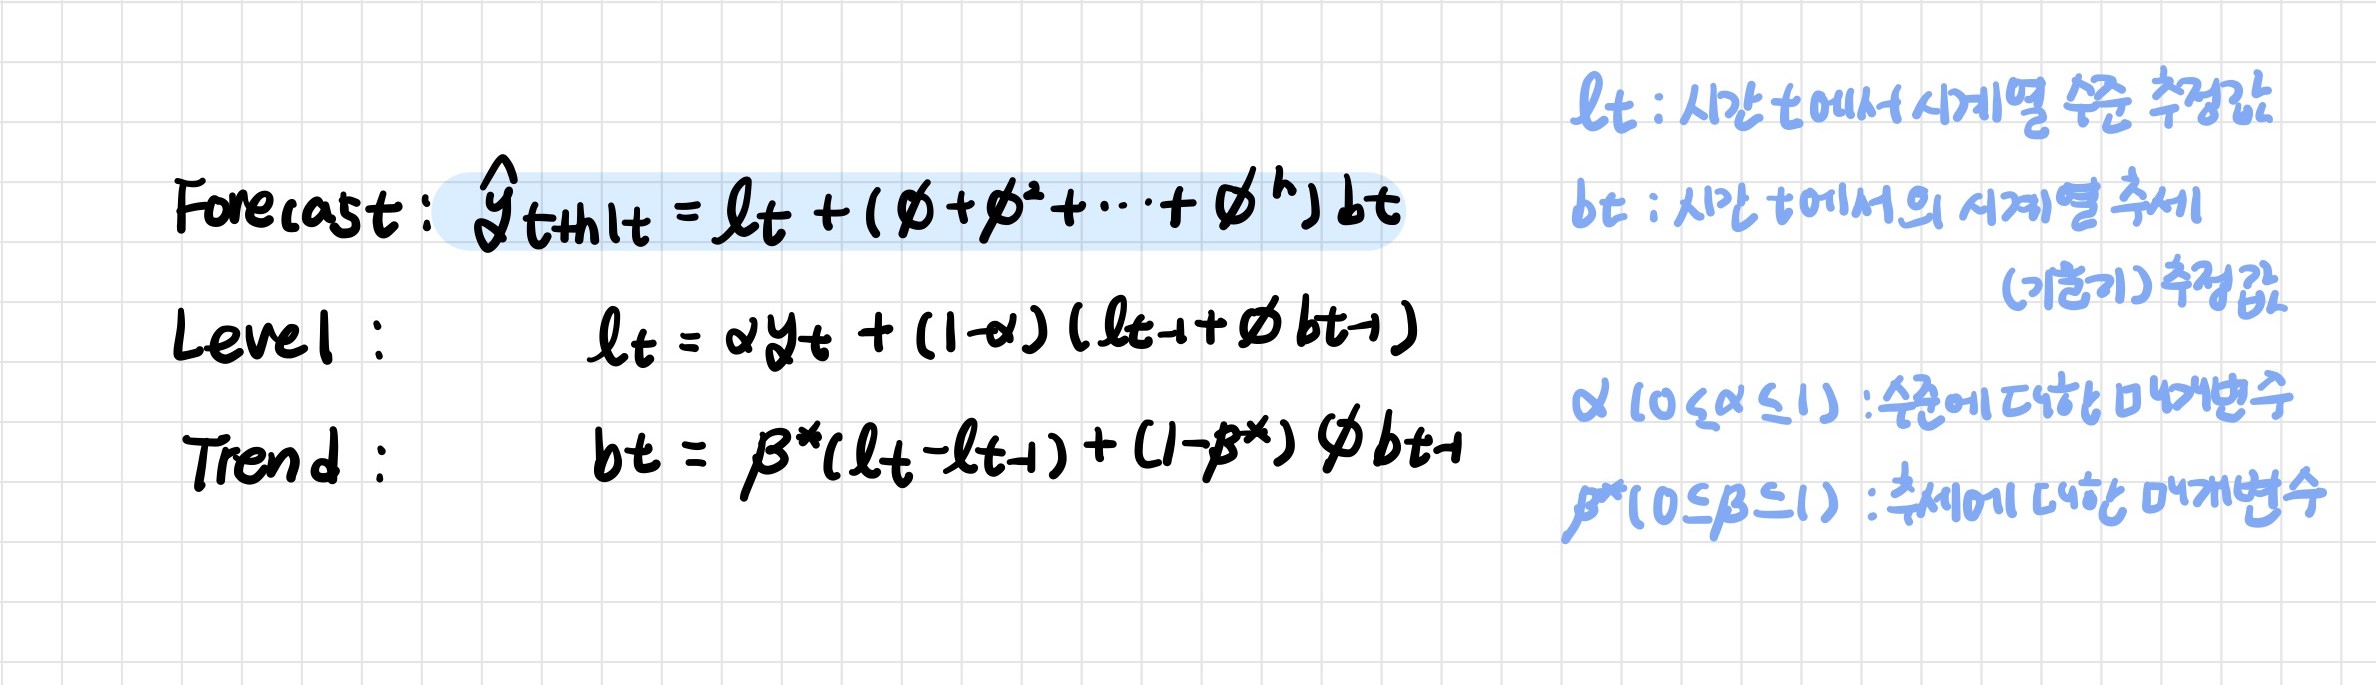 Forecast: ŷt+h|t = lt + (ø+ø²+⋯+ øʰ) bt
Level : lt = αyt + (1-α) (lt-1 + ø bt-1)
Trend : bt = β*(lt-lt-1) + (1-β*) ø bt-1
lt : 시간 t에서 시계열 수준 추정값
bt : 시간 t에서의 시계열 추세
(기울기) 추정값
α (0≤α≤1) : 수준에 대한 매개변수
β*(0≤β≤1) : 추세에 대한 매개변수